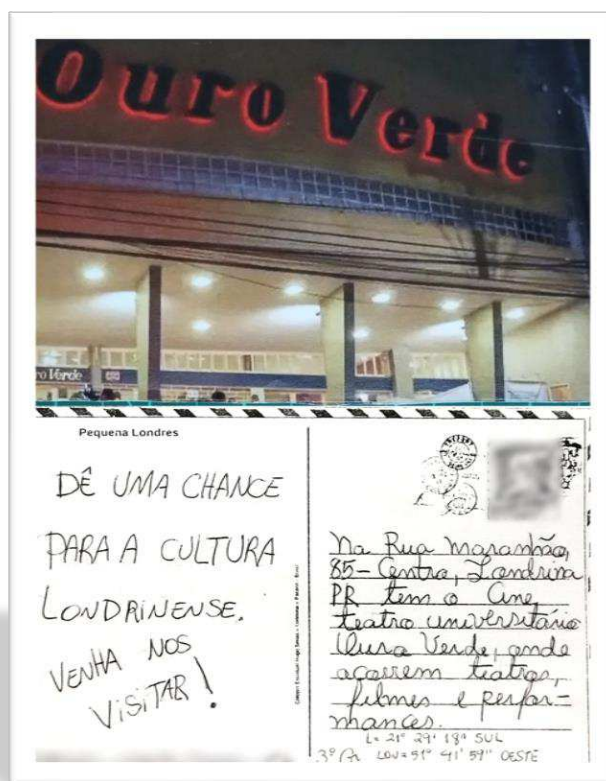 Ouro Verde
ro Verde
Pequena Londres
DÊ UMA CHANCE
PARA A CULTURA
LONDRINENSE.
VENHA NOS
VISITAR!
Na Rua Maranhão,
85 - Centro, Londrina
PR tem o Cine,
teatro universitário
Ouro Verde, onde
ocorrem teatros,
filmes e perfor-
mances.
L= 21° 29' 18" SUL
3º A LON= 51° 41' 59" OESTE